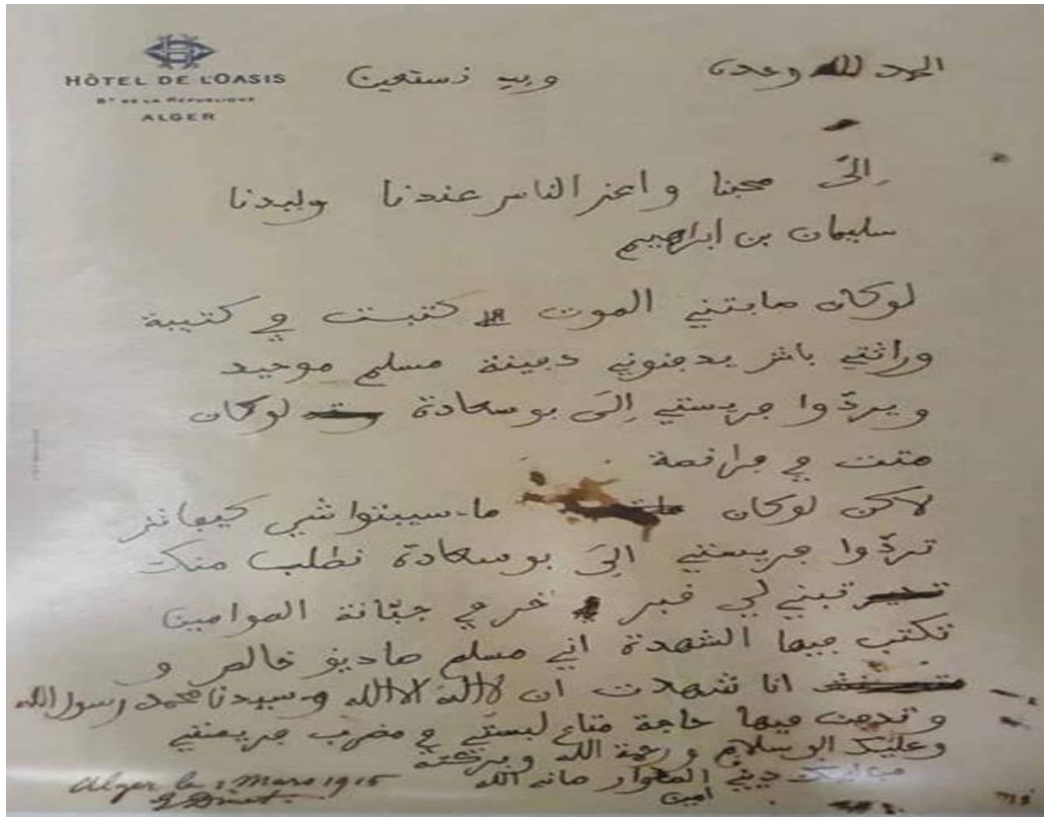 HÔTEL DE L'OASIS
Bd DE LA RÉPUBLIQUE
ALGER
الحمد لله وحده وبه نستعين
إلى محبنا واعز الناس عندنا وليدنا
سليمان بن ابراهيم
لوكان صابتني الموت كتبت في كتيبة
وراثتي باش يدفنوني دفينة مسلم موحيد
ويردّوا جريستي إلى بوسعادة لوكان
متت في فرانصة
لاكن لوكان ما سيبتواشي كيفاش
تردّوا جريستي الى بوسعادة نطلب منك
تبني لي قبر اخر في جبّانة الموامين
تكتب فيها الشهدة اني مسلم صاديق خالص و
انا شهدت ان لا اله الا الله وسيدنا محمد رسول الله
وتدفن فيها حاجة متاع لبستي في مضرب جريستي
وعليك السلام ورحمة الله وبركته
ديني صانه الله
امين
Alger le 1 Mars 1915
E. Dinet